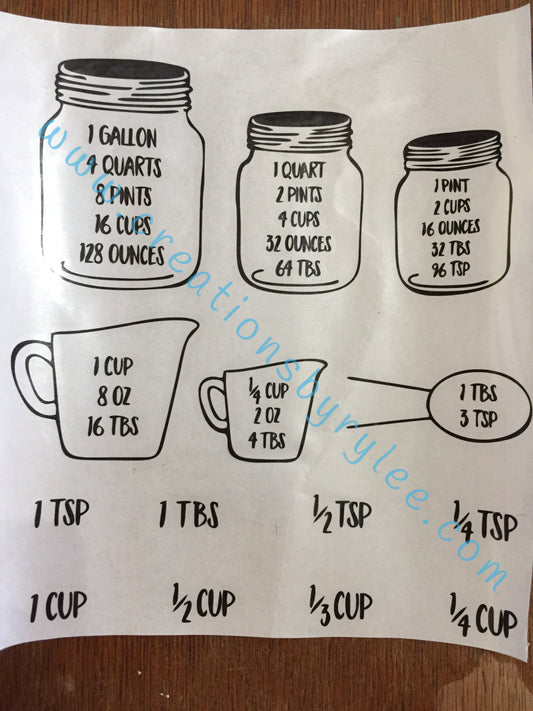 1 GALLON
4 QUARTS
8 PINTS
16 CUPS
128 OUNCES
1 QUART
2 PINTS
4 CUPS
32 OUNCES
64 TBS
1 PINT
2 CUPS
16 OUNCES
32 TBS
96 TSP
1 CUP
8 OZ
16 TBS
1/4 CUP
2 OZ
4 TBS
1 TBS
3 TSP
1 TSP 1 TBS 1/2 TSP 1/4 TSP
1 CUP 1/2 CUP 1/3 CUP 1/4 CUP
www.creationsbyrylee.com